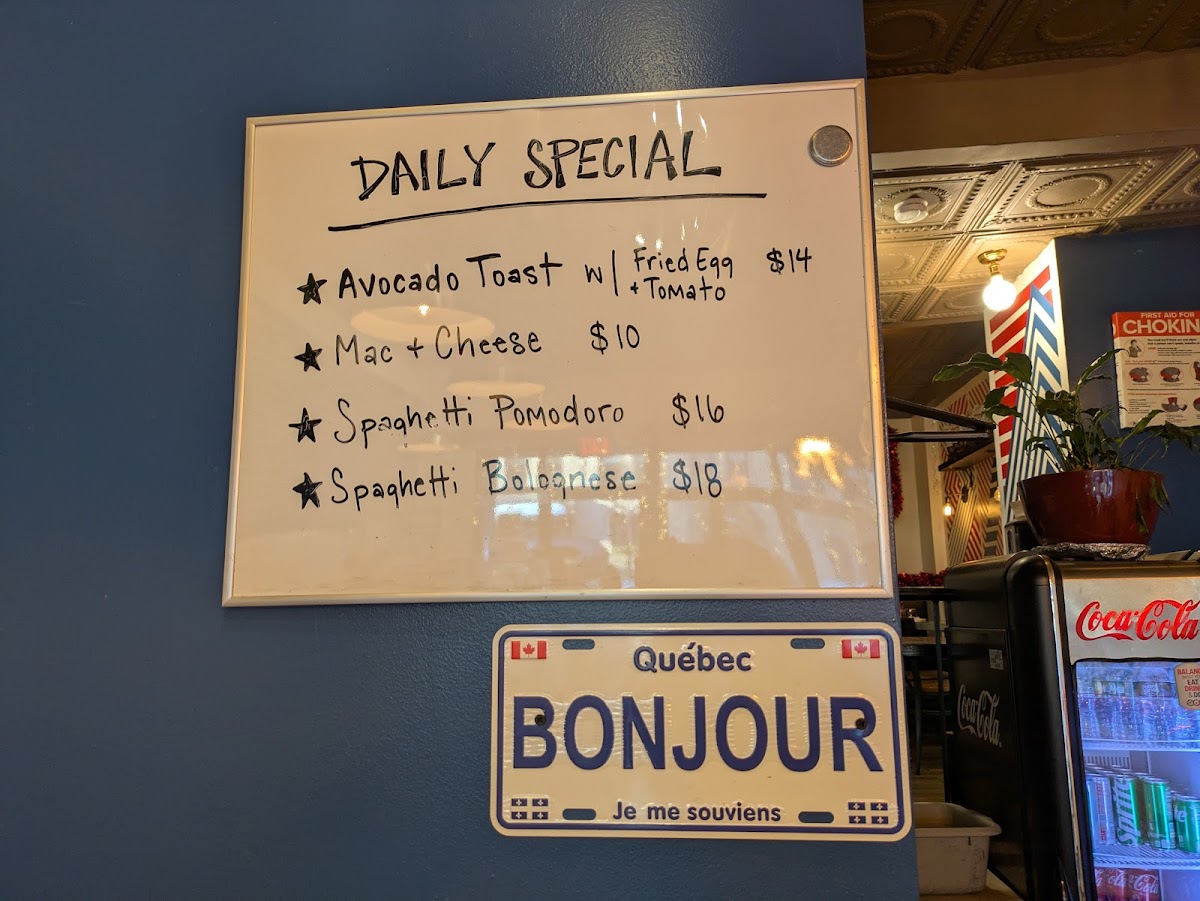 DAILY SPECIAL
★ Avocado Toast w/ Fried Egg $14
+ Tomato
★ Mac + Cheese $10
★ Spaghetti Pomodoro $16
★ Spaghetti Bolognese $18
Québec
BONJOUR
Je me souviens
FIRST AID FOR
CHOKIN
Coca-Cola
Coca-Cola
BALANC
EAT
DRINK
& DO
Sprite
Coca-Cola